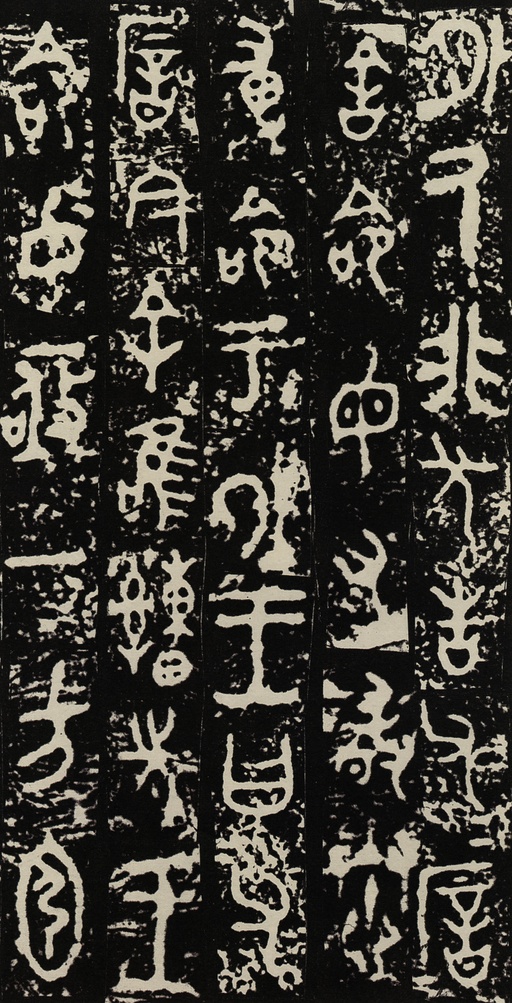 外厥非先告父厝
舍命毋又敢憃
尃命于外王曰父
厝今余唯先王
命女亟一方